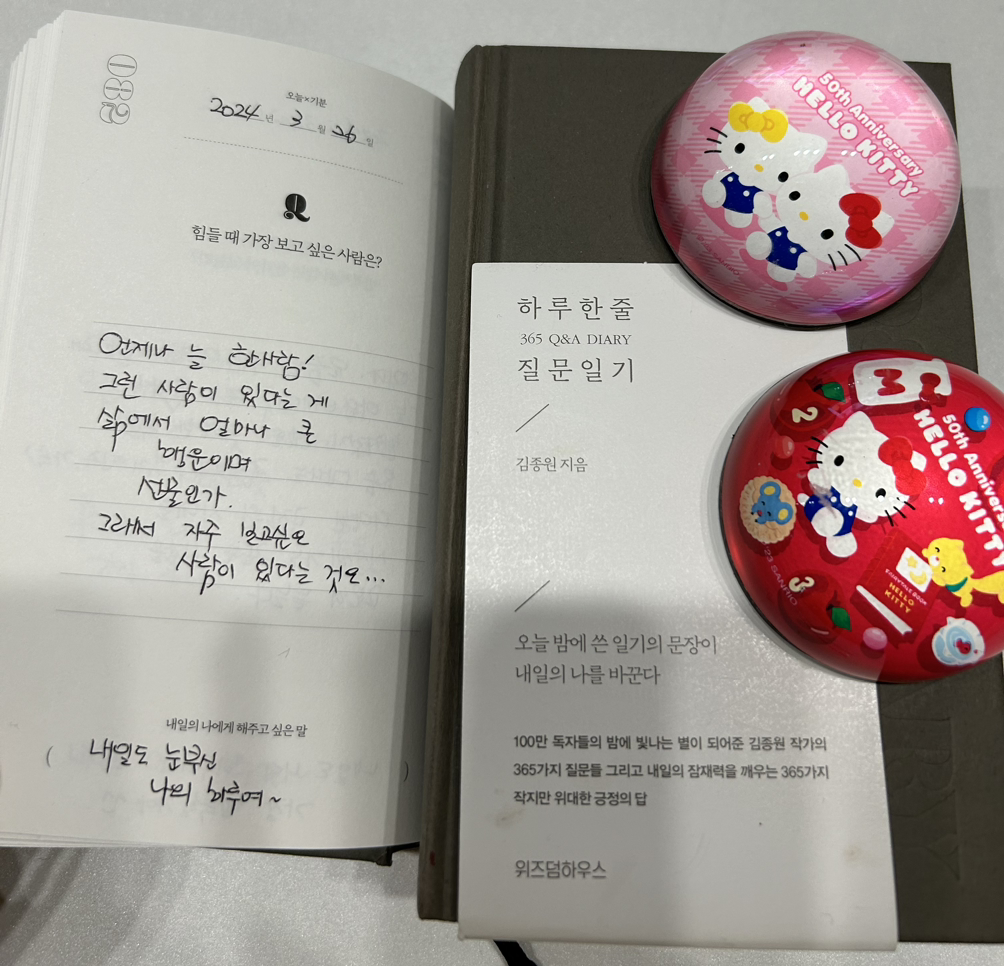 오늘×기분
2024년 3월 26일
Q
힘들 때 가장 보고 싶은 사람은?
언제나 늘 한사람!
그런 사람이 있다는 게
삶에서 얼마나 큰
행운이며
선물인가.
그래서 자주 보고싶은
사람이 있다는 것은...
내일의 나에게 해주고 싶은 말
( 내일도 눈부신 )
나의 하루여~
하루 한 줄
365 Q&A DIARY
질문일기
김종원 지음
오늘 밤에 쓴 일기의 문장이
내일의 나를 바꾼다
100만 독자들의 밤에 빛나는 별이 되어준 김종원 작가의
365가지 질문들 그리고 내일의 잠재력을 깨우는 365가지
작지만 위대한 긍정의 답
위즈덤하우스
50th Anniversary
HELLO KITTY
50th Annivers
HELLO KITTY
2
3
HELLO
KITTY
SANRIO